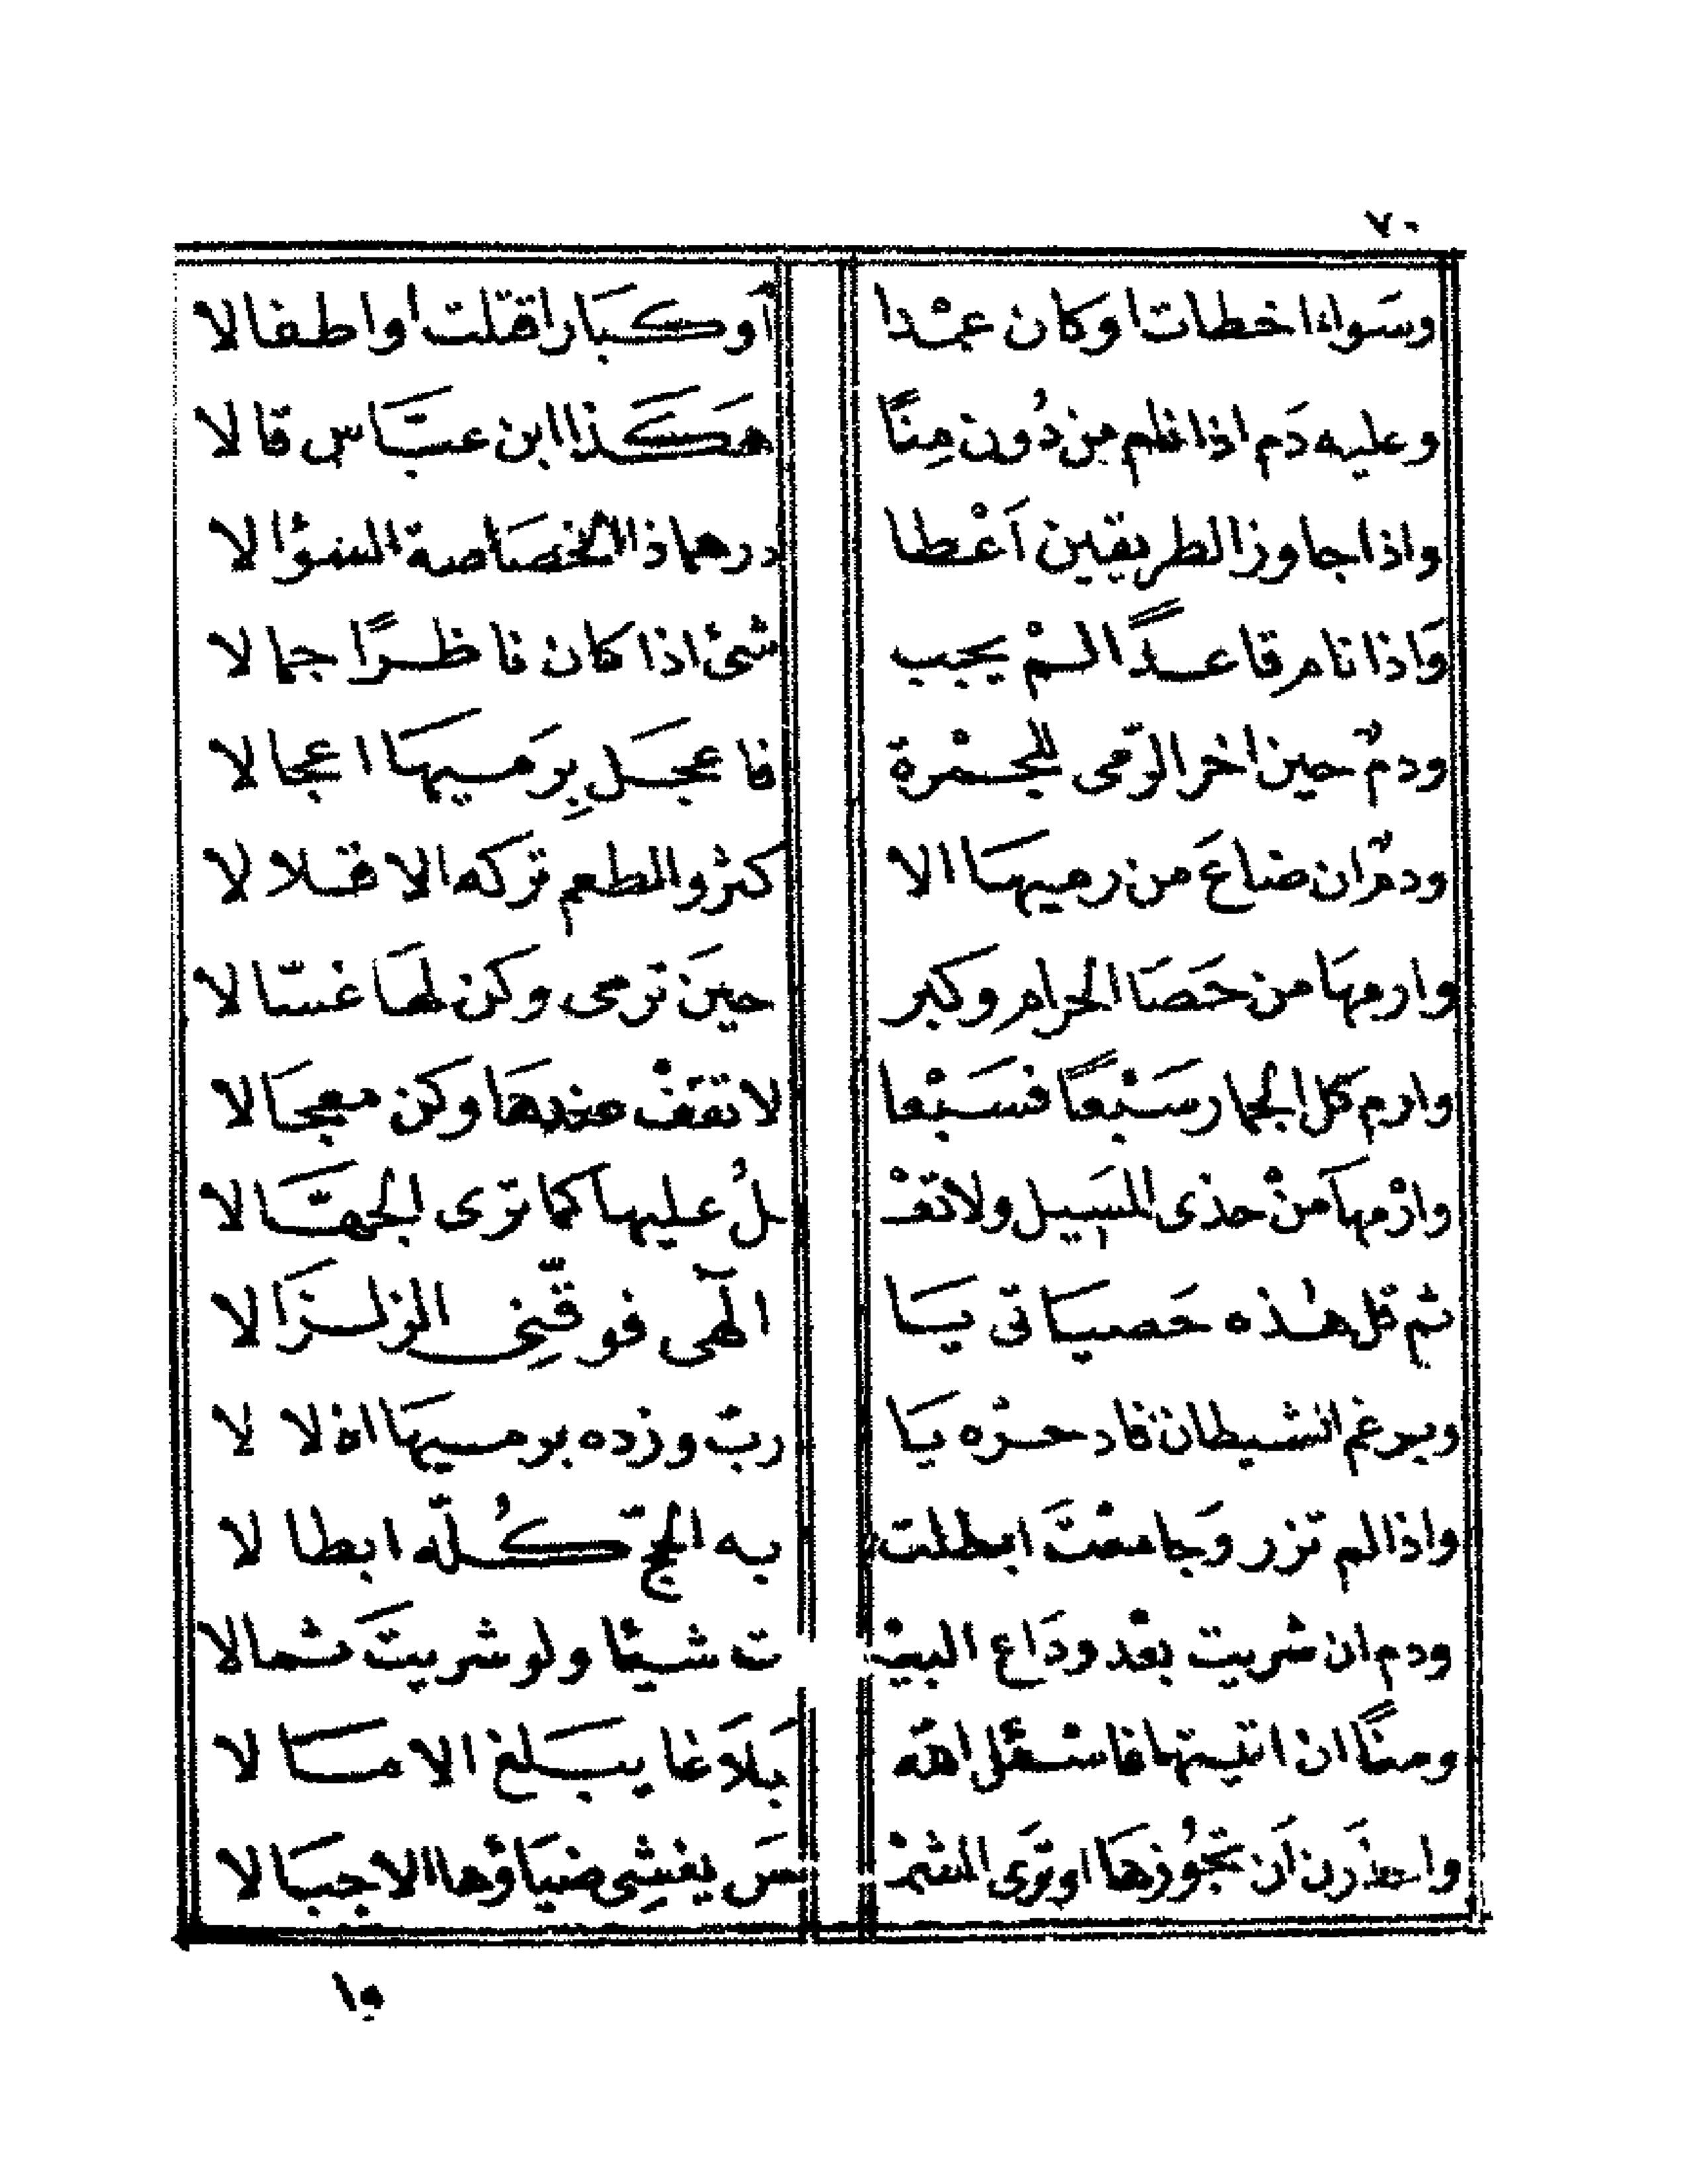 ٧٠
وسَواءا خطات اوكان عمْدا أوكبَارا قتلت اواطفالا
وعليه دَم اذا نام مِن دُون مِنًا هَكَذا ابن عبَّاس قالا
واذا جاوز الطريقين اَعْطا درهما ذا الخصَاصة السؤالا
وَاذا نام قاعدًا لمْ يجب شئ اذا كان ناظرًا جمالا
ودمٌ حين اخر الرّمى للجمْرة فاعجَل بِرَميهَا اعجالا
ودمٌ ان ضاعَ من رميهَا الا كثر والمطعم تركه الاقلالا
وارمهَا من حَصَا الحرام وكبر حينَ ترمى وكن لهَا غسّالا
وارم كل الجمار سَبْعًا فسَبْعا لا تقفْ عندهَا وكن معجَالا
وارْمها منْ حذى المسَيل ولا تقفْ ـلُ عليها كما ترى الجهَّالا
ثم قل هذه حَصياتى يَا الٓهى فوقّنِى الزلزَالا
ويرغم الشيطان فادحرْه يَا ربّ وزده برميهَا اذلالا
واذا لم تزر وَجامعْتَ ابطلت به الحجّ كُلّه ابطالا
ودم ان شريت بعْد ودَاع البيْـ ت شيئا ولو شريتَ شمالا
ومنًا ان اتيتها فاسْئل اللّه بَلاَغا يبَلغ الامَالا
واحذَرن اَن تجُوزهَا او تَرَى الشمْـ سَ يغشِى ضيَاؤها الاجبَالا
وا